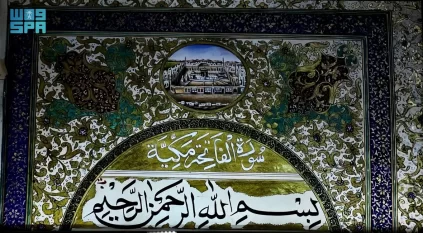 واس
SPA
سُورَةُ الفَاتِحَةِ مَكِّيَّة
بِسْمِ اللهِ الرَّحْمٰنِ الرَّحِيمِ